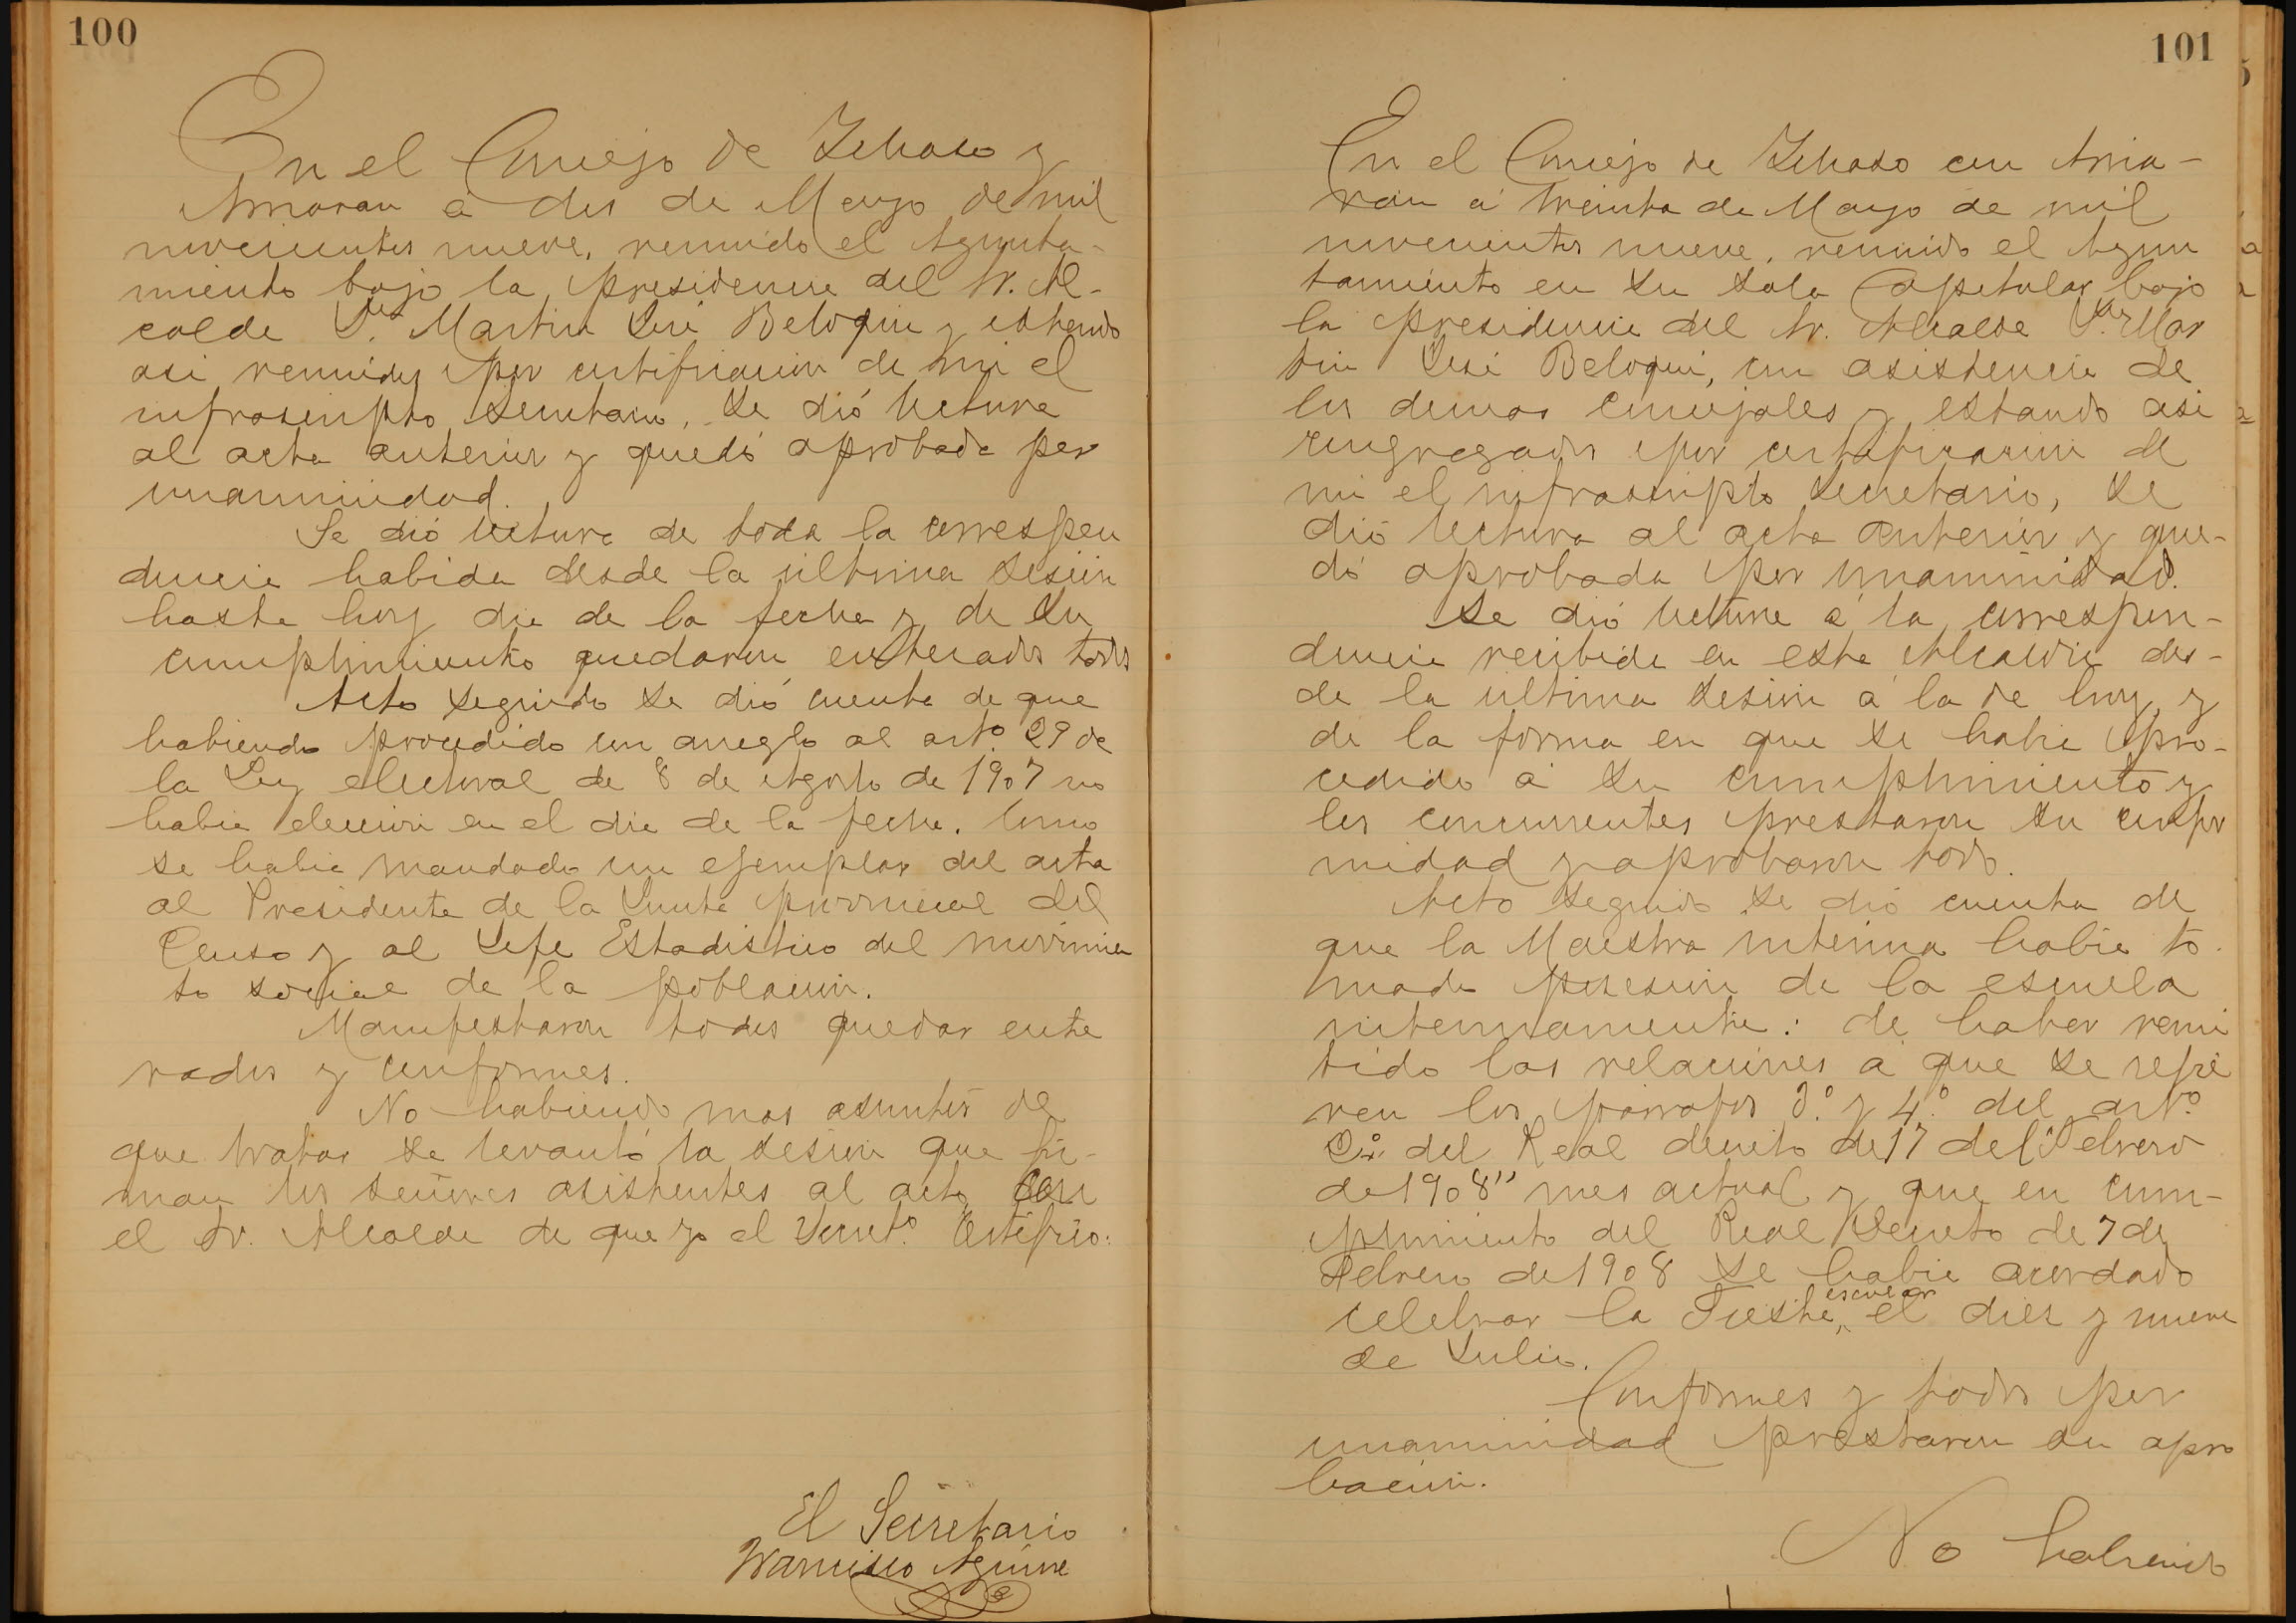 100
En el Concejo de Ichaso y
Arriaran á dos de Mayo de mil
novecientos nueve, reunido el Ayunta-
miento bajo la presidencia del Sr. Al-
calde Dn. Martin José Beloqui y estando
asi reunidos por certificacion de mi el
infrascripto Secretario, se dió lectura
al acta anterior y quedó aprobada por
unanimidad.
Se dió lectura de toda la correspon
dencia habida desde la última sesion
hasta hoy dia de la fecha y de su
cumplimiento quedaron enterados todos
Acto seguido se dió cuenta de que
habiendo procedido con arreglo al artº 29 de
la Ley electoral de 8 de Agosto de 1907 no
habia eleccion en el dia de la fecha. Como
se habia mandado un ejemplar del acta
al Presidente de la Junta provincial del
Censo y al Jefe Estadistico del movimien
to social de la poblacion.
Manifestaron todos quedar ente
rados y conformes.
No habiendo mas asuntos de
que tratar se levantó la sesion que fir-
man los señores asistentes al acto con
el Sr. Alcalde de que yo el Secretº Certifico.
El Secretario
Francisco Aguirre
101
En el Concejo de Ichaso con Arria-
ran á treinta de Mayo de mil
novecientos nueve, reunido el Ayun
tamiento en su Sala Capitular bajo
la presidencia del Sr. Alcalde Dn. Mar
tin José Beloqui, con asistencia de
los demas concejales y estando asi
congregados por certificacion de
mi el infrascripto Secretario, se
dió lectura al acta anterior y que-
dó aprobada por unanimidad.
Se dió lectura á la correspon-
dencia recibida en esta Alcaldia des-
de la ultima sesion á la de hoy, y
de la forma en que se habia pro-
cedido á su cumplimiento y
los concurrentes prestaron su confor
midad y aprobaron todo.
Acto seguido se dió cuenta de
que la Maestra interina habia to-
mado posesion de la escuela
interinamente: de haber remi
tido las relaciones á que se refie
ren los párrafos 3º y 4º del artº
2º del Real decreto de 17 del "Febrero
de 1908" mes actual y que en cum-
plimiento del Real Decreto de 7 de
Febrero de 1908 se habia acordado
celebrar la Fiesta escolar el diez y nueve
de Julio.
Conformes y todos por
unanimidad prestaron su apro
bacion.
No habiendo